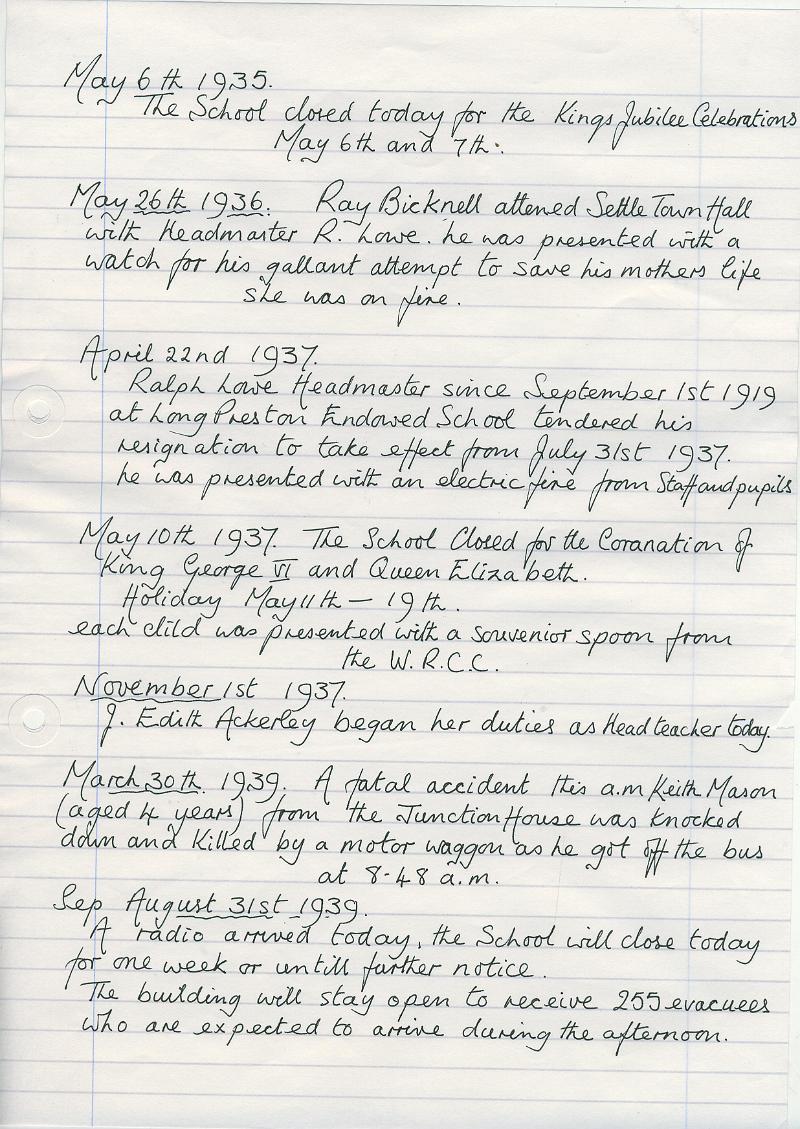 May 6th 1935.
The School closed today for the Kings Jubilee Celebrations
May 6th and 7th.
May 26th 1936. Ray Bicknell attened Settle Town Hall
with Headmaster R. Lowe. he was presented with a
watch for his gallant attempt to save his mothers life
she was on fire.
April 22nd 1937.
Ralph Lowe Headmaster since September 1st 1919
at Long Preston Endowed School tendered his
resignation to take effect from July 31st 1937.
he was presented with an electric fire from Staff and pupils
May 10th 1937. The School Closed for the Coranation of
King George VI and Queen Elizabeth.
Holiday May 11th - 19th.
each clild was presented with a souvenior spoon from
the W.R.C.C.
November 1st 1937.
J. Edith Ackerley began her duties as Head teacher today.
March 30th 1939. A fatal accident this a.m Keith Mason
(aged 4 years) from the Junction House was knocked
down and killed by a motor waggon as he got off the bus
at 8-48 a.m.
Sep August 31st 1939.
A radio arrived today, the School will close today
for one week or untill further notice.
The building will stay open to receive 255 evacuees
who are expected to arrive during the afternoon.